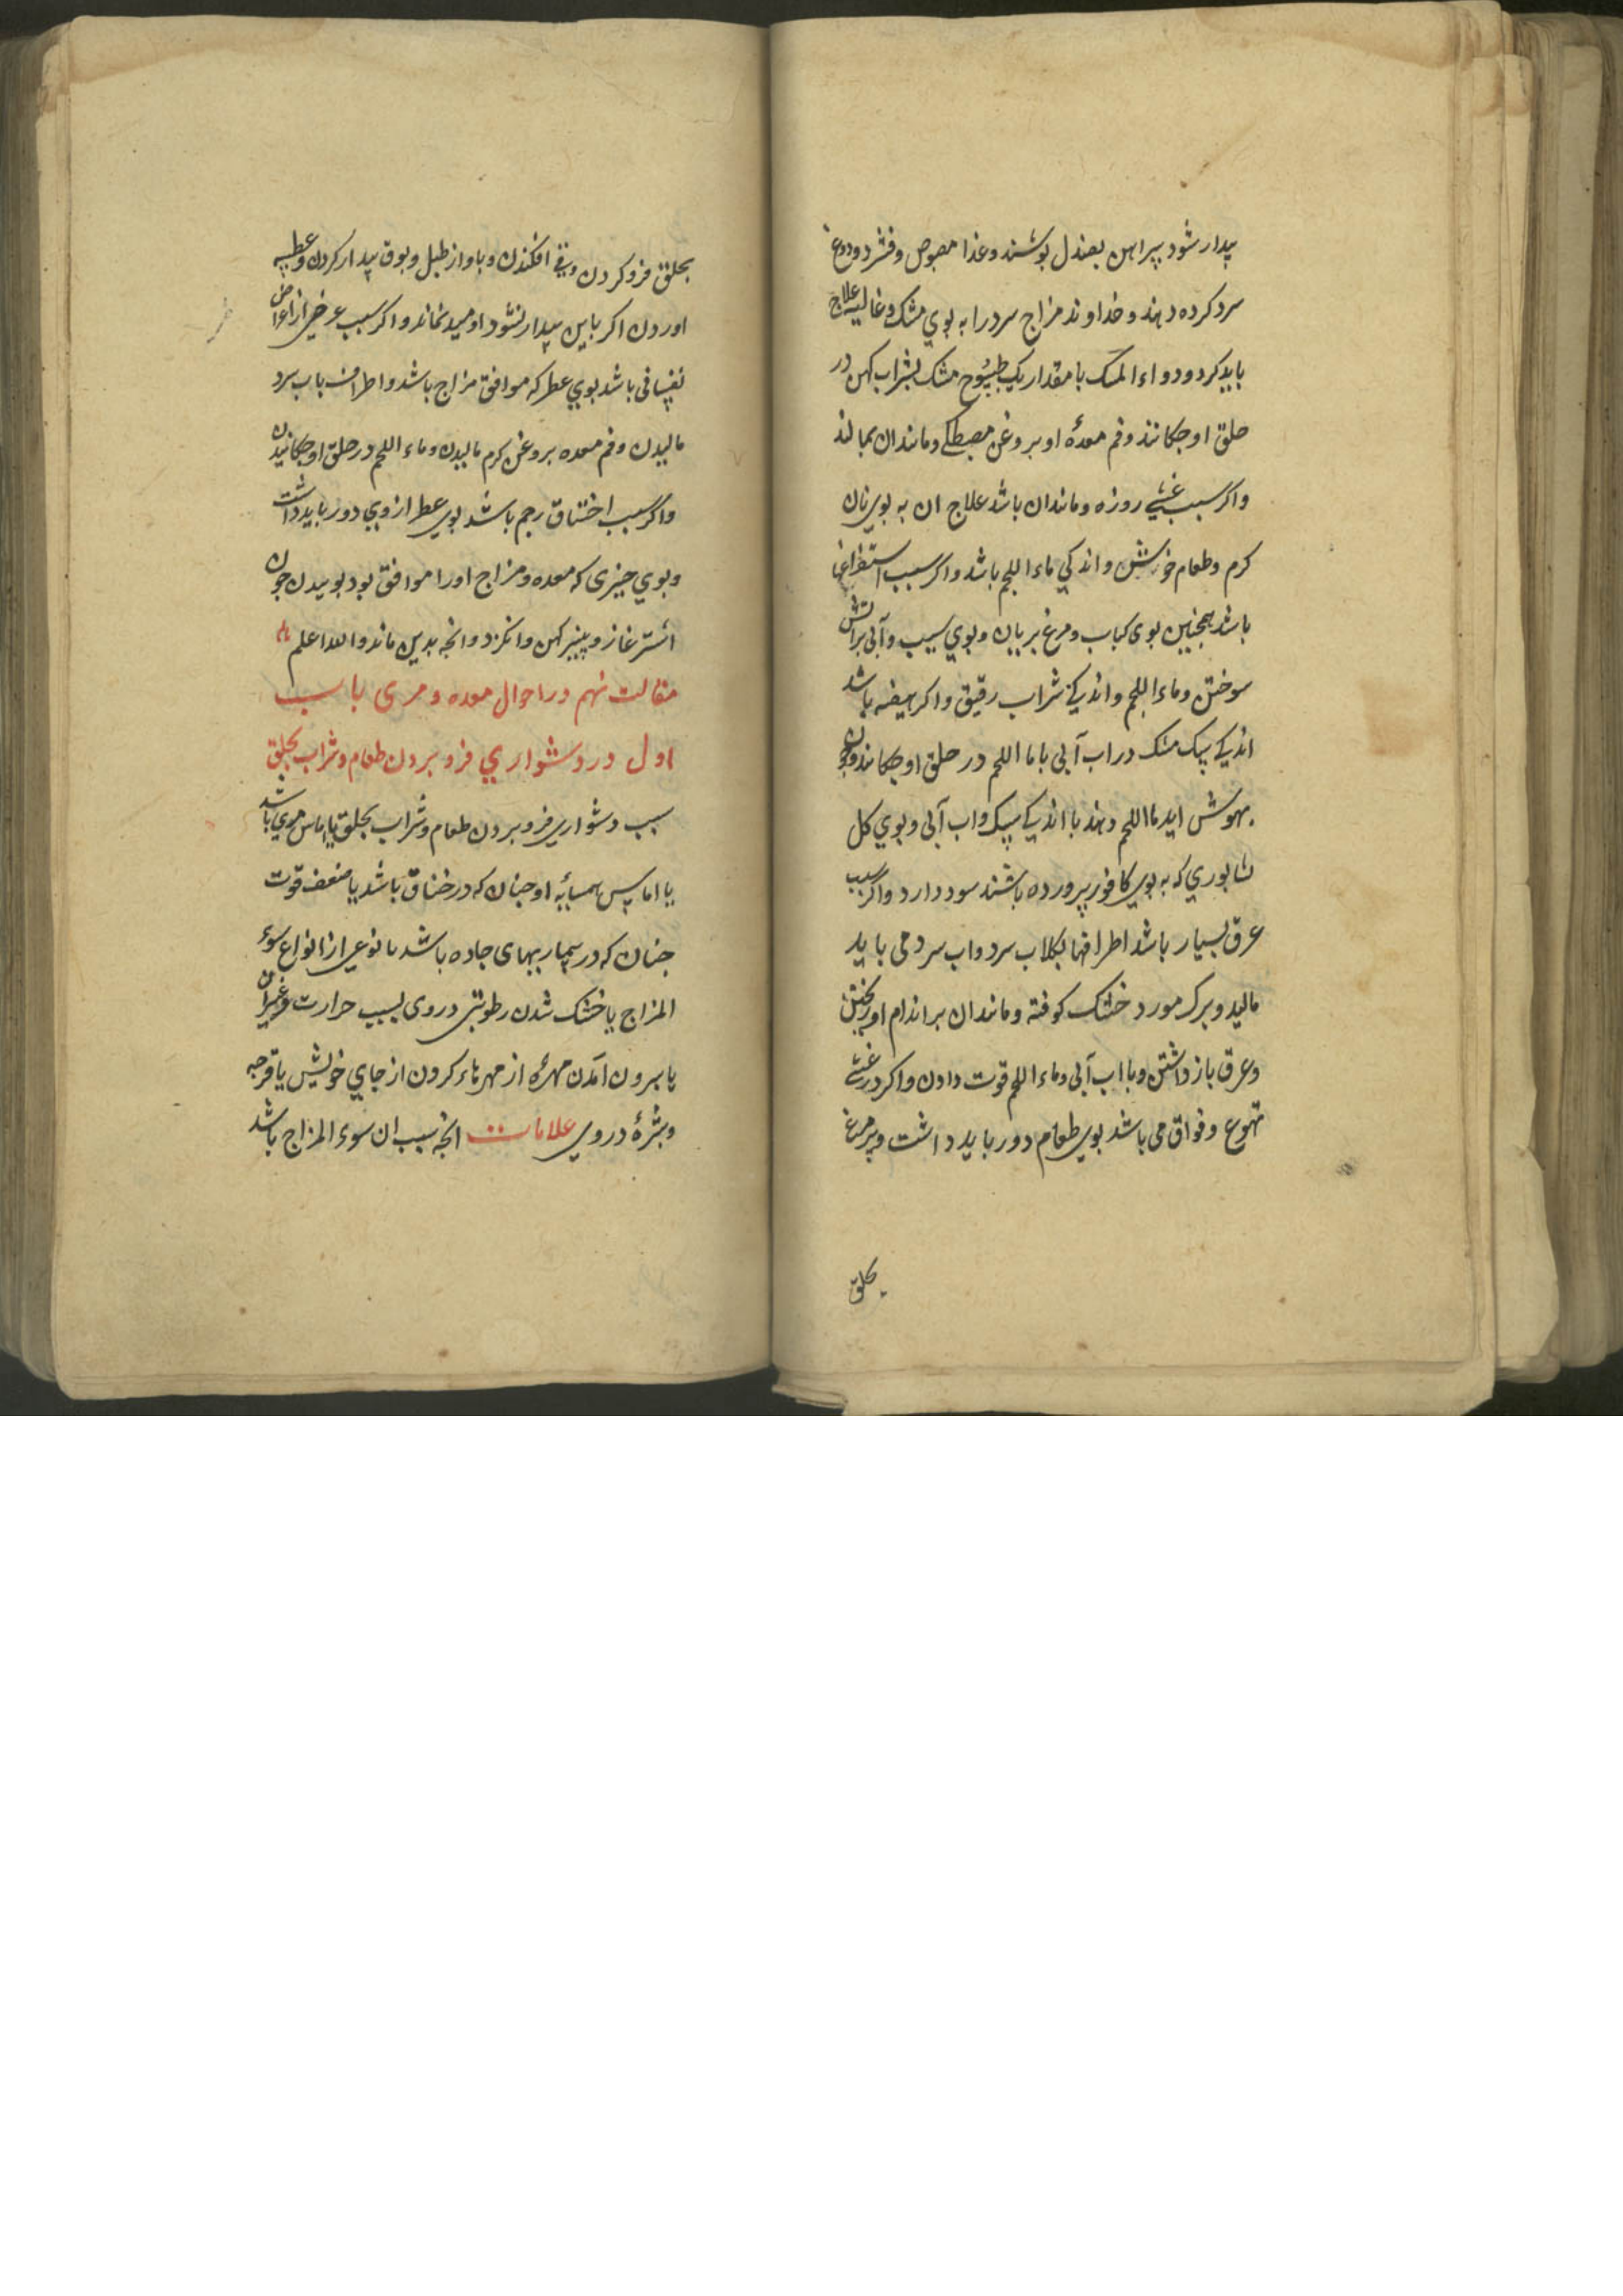 پدار شود پیراهن بصندل پوشند و غذا مصوص و فشرد و دوغ
سرد کرده دهند و خداوند مزاج سرد را به بوي مشک و غالیه علاج
باید کرد و دواء المسک با مقدار یک طسوج مشک بشراب کهن در
حلق او چکانند و فم معدهٔ او بروغن مصطکے و مانند ان بمالند
واکر سبب غشے روزه و مانند ان باشد علاج ان به بوي نان
کرم و طعام خوش و اندکي ماء اللحم باشد واکر سبب استفراغها
باشد همجنین بوی کباب و مرغ بریان و بوي سیب و آبی بر اتش
سوختن و ماء اللحم و اندکے شراب رقیق واکر هیضه باشد
اندکے سک مشک در اب آبی با ما اللحم در حلق او چکانند و چون
بهوش اید ما اللحم دهند با اندکے سک و اب آبی و بوي کل
نشابوري که به بوي کافور پرورده باشند سود دارد واکر سبب
عرق بسیار باشد اطرافها بکلاب سرد و اب سرد می باید
مالید و برک مورد خشک کوفته و مانند ان بر اندام او ریختن
و عرق باز داشتن و با اب آبی و ماء اللحم قوت دادن واکر در غشے
تهوع و فواق می باشد بوي طعام دور باید داشت و پر مرغ
بحلق
بحلق فرو کردن و قی افکندن و باواز طبل و بوق پدار کردن و عطسه
اوردن اکر باین پدار نشود اومید نماند واکر سبب عرضي از اعراض
نفسانی باشد بوي عطر که موافق مزاج باشد و اطراف باب سرد
مالیدن و فم معده بروغن کرم مالیدن و ماء اللحم در حلق او چکانیدن
واکر سبب اختناق رحم باشد بوي عطر ازوي دور باید داشت
و بوي جیزی که معده و مزاج اورا موافق بود بوییدن جون
اشترغاز و پنیر کهن و انکزد و انجه بدین ماند والله اعلم
مقالت نهم در احوال معده و مری باب
اول در دشواري فرو بردن طعام و شراب بحلق
سبب دشواري فرو بردن طعام و شراب بحلق یا اماس مري باشد
یا اماس همسایٔه او جنان که در خناق باشد یا ضعف قوت
جنان که در بیماریهای حاده باشد یا نوعي از انواع سوء
المزاج یا خشک شدن رطوبتی در وی بسبب حرارت و غیر ان
یا بیرون آمدن مهرهٔ از مهرهاء کردن از جاي خویش یا قرحه
و بثرهٔ در وي علامات انجه سبب ان سوء المزاج باشد